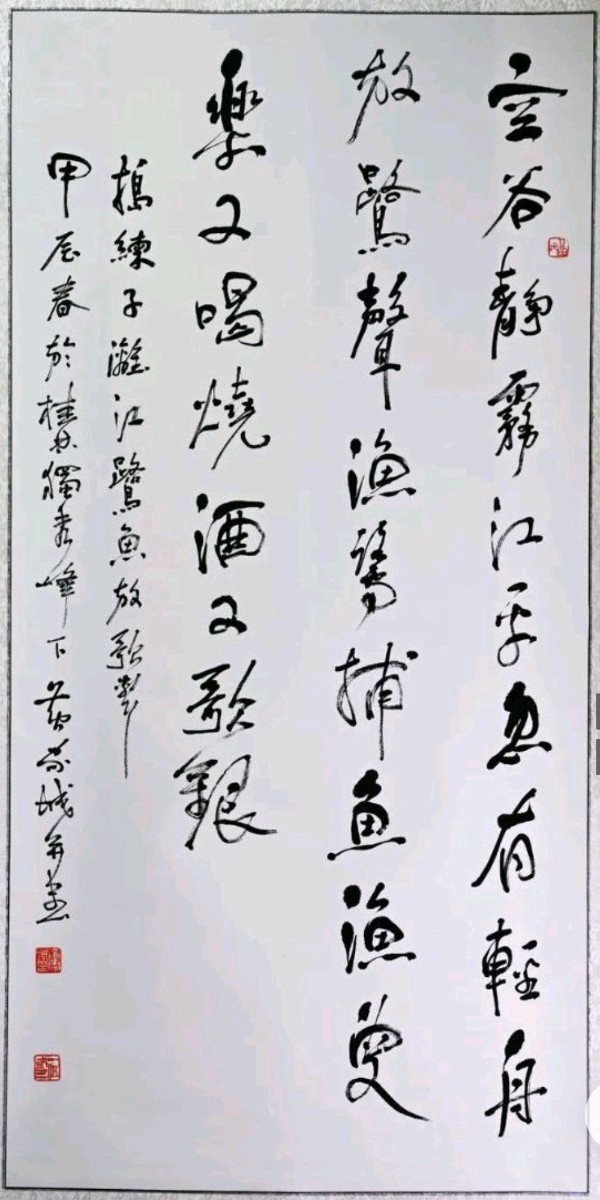 空谷靜霧江平忽有輕舟
放鷺聲漁鷺捕魚漁叟
樂又喝燒酒又歌銀
搗練子灕江鷺魚放歌
甲辰春於桂林獨秀峰下黄城并書